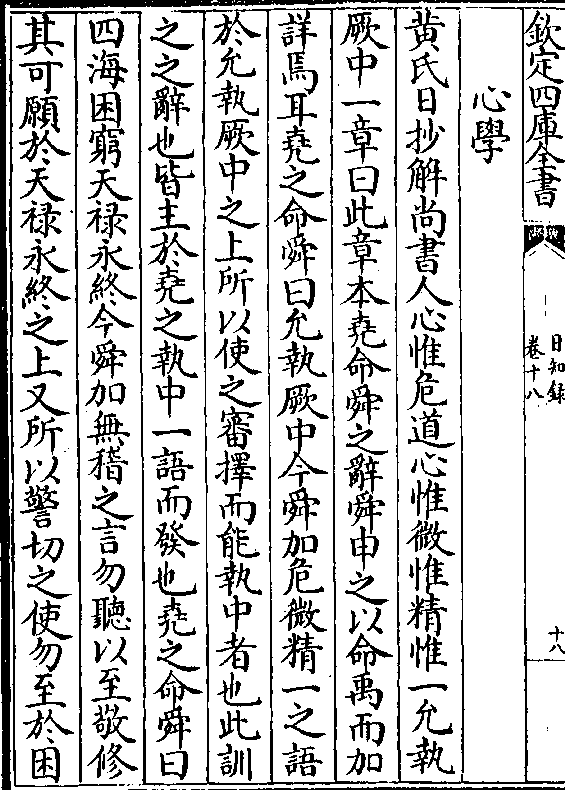 欽定四庫全書
日知録
卷十八
十八
心學
黄氏日抄解尚書人心惟危道心惟微惟精惟一允執
厥中一章曰此章本堯命舜之辭舜申之以命禹而加
詳焉耳堯之命舜曰允執厥中今舜加危微精一之語
於允執厥中之上所以使之審擇而能執中者也此訓
之之辭也皆主於堯之執中一語而發也堯之命舜曰
四海困窮天禄永終今舜加無稽之言勿聽以至敬修
其可願於天禄永終之上又所以警切之使勿至於困